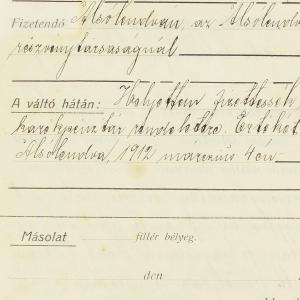 Fizetendő Alsólendván, az Alsólendva
részvénytársaságnál
A váltó hátán: Helyettem fizettessék
takarékpénztár rendeletére. Érték
Alsólendva, 1912 március 4én
Másolat fillér bélyeg.
den